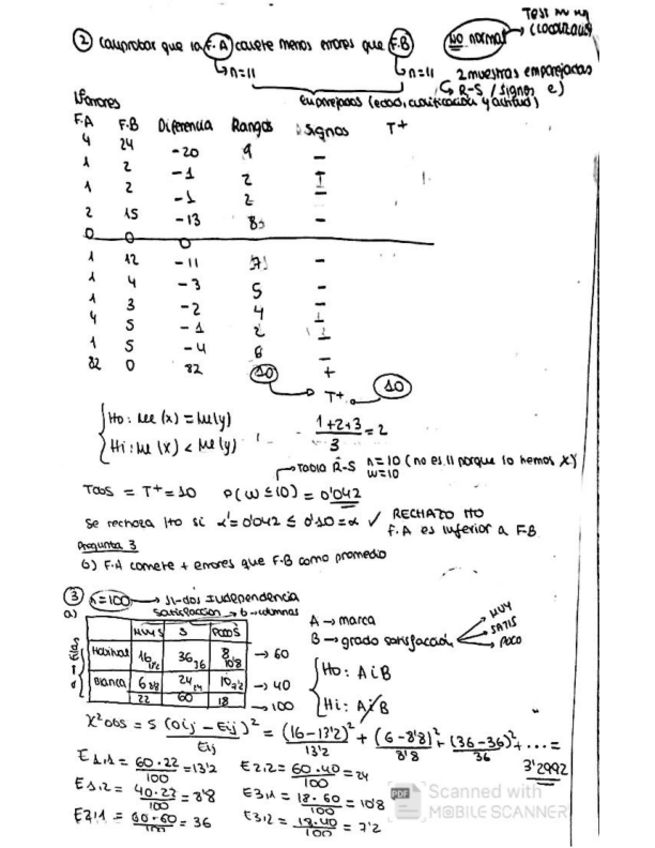 Test
② Comprobar que la F.A comete menos errores que F.B
No normal → (Localización)
↳ n=11
↳ n=11
2 muestras emparejadas
↳ R-S / signos
Emparejados (edad, cualificación y actitud)
Errores
F.A F.B Diferencia Rangos Signos T+
4 24 -20 9 -
1 2 -1 2 -
1 2 -1 2 -
2 15 -13 8 -
0 0 0
1 12 -11 7 -
1 4 -3 5 -
1 3 -2 4 -
4 5 -1 2 -
1 5 -4 6 -
82 0 82 10 +
→ T+ 10
Ho: Me(x) = Me(y)
Hi: Me(x) < Me(y)
1+2+3/3 = 2
→ Tabla R-S n=10 (no es 11 porque lo hemos X)
w=10
Tobs = T+ = 10 P(W ≤ 10) = 0'042
Se rechaza Ho si α' = 0'042 ≤ 0'10 = α ✓ RECHAZO Ho
F.A es inferior a F.B
Pregunta 3
b) F.A comete + errores que F.B como promedio
③ n=100 → Ji-dos Independencia
a) Satisfacción → columnas
Muy S S Poco S
Habitual 16 13'2 36 36 8 10'8 → 60
Blanca 6 8'8 24 24 10 7'2 → 40
22 60 18 → 100
Filas
A → marca
B → grado satisfacción
MUY
SATIS
POCO
Ho: A i B
Hi: A i B
X²obs = S (Oij - Eij)²/Eij = (16-13'2)²/13'2 + (6-8'8)²/8'8 + (36-36)²/36 + ... =
3'2992
E1,1 = 60·22/100 = 13'2 E2,2 = 60·40/100 = 24
E1,2 = 40·22/100 = 8'8 E3,1 = 18·60/100 = 10'8
E2,1 = 60·60/100 = 36 E3,2 = 18·40/100 = 7'2
PDF Scanned with
MOBILE SCANNER